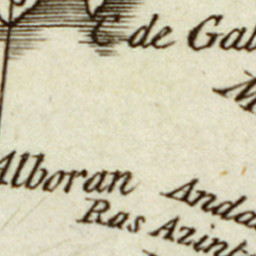 C de Gal
M
Alboran
Anda
Ras Azint